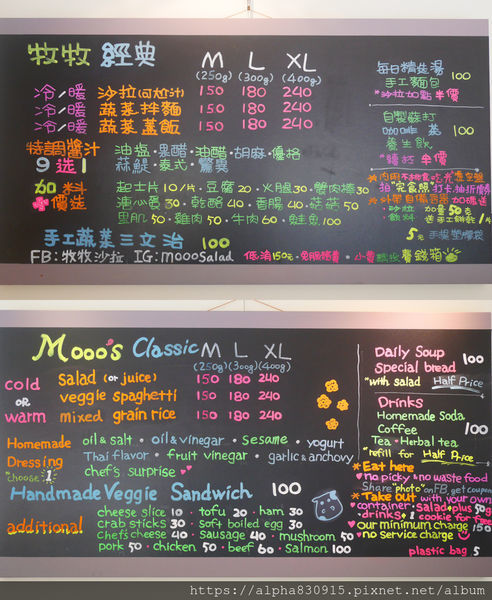 牧牧 經典 M L XL
(250g) (300g) (400g)
冷/暖 沙拉(可拉汁) 150 180 240
冷/暖 蔬菜拌麵 150 180 240
冷/暖 蔬菜蓋飯 150 180 240
特調醬汁 油塩・果醋・油醋・胡麻・優格
9選1 蒜鯷・泰式・驚奬
加料 起士片10/片・豆腐20・火腿30・蟹肉棒30
價送 溏心蛋30・乾酪40・香腸40・菇菇50
里肌50・雞肉50・牛肉60・鮭魚100
手工蔬菜三文治 100
FB:牧牧沙拉 IG:mooosalad 低消150元・免服務費・小費
每日精選湯
手工麵包 100
*沙拉加點半價
自製蘇打
咖啡 茶 100
養生飲
*續打半價
*沙拉 加量50克
・飲料 送手工餅乾1片
5元 手提塑膠袋
Mooo's Classic M L XL
(250g) (300g) (400g)
cold salad (or juice) 150 180 240
OR veggie spaghetti 150 180 240
warm mixed grain rice 150 180 240
Homemade oil & salt・oil & vinegar・sesame・yogurt
Dressing Thai flavor・fruit vinegar・garlic & anchovy
"choose" 1 chef's surprise
Handmade Veggie Sandwich 100
additional cheese slice 10・tofu 20・ham 30
crab sticks 30・soft boiled egg 30
chef's cheese 40・sausage 40・mushroom 50
pork 50・chicken 50・beef 60・salmon 100
Daily Soup
Special bread 100
"with salad Half Price
Drinks
Homemade Soda
Coffee 100
Tea・Herbal tea
"refill for Half Price
*Eat here
no picky & no waste food
Share "photo" on FB, get coupon
*Take out with your own
container・salad plus 50g
・drinks 1 cookie for free
our minimum charge 150
no service charge
plastic bag 5
https://alpha830915.pixnet.net/album